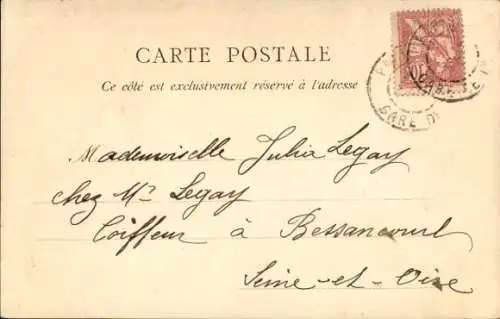 CARTE POSTALE
Ce côté est exclusivement réservé à l'adresse
GARE D
Mademoiselle Julia Legay
chez Mr Legay
Coiffeur à Bessancourt
Seine-et-Oise